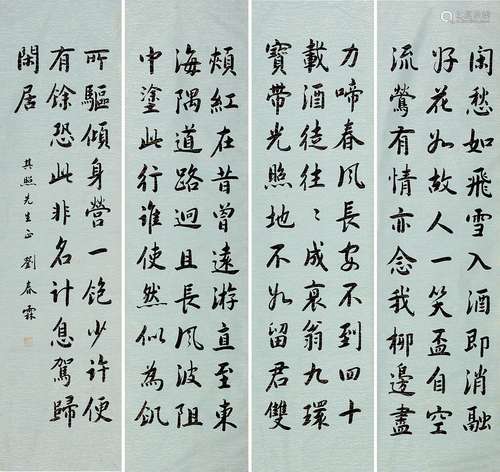 閑愁如飛雪入酒即消融
好花如故人一笑盃自空
流鶯有情亦念我柳邊盡
力啼春風長安不到四十
載酒徒往〻成衰翁九環
寶帶光照地不如留君雙
頰紅在昔曾遠游直至東
海隅道路迥且長風波阻
中塗此行誰使然似為飢
所驅傾身營一飽少許便
有餘恐此非名計息駕歸
閑居
其照先生正 劉春霖